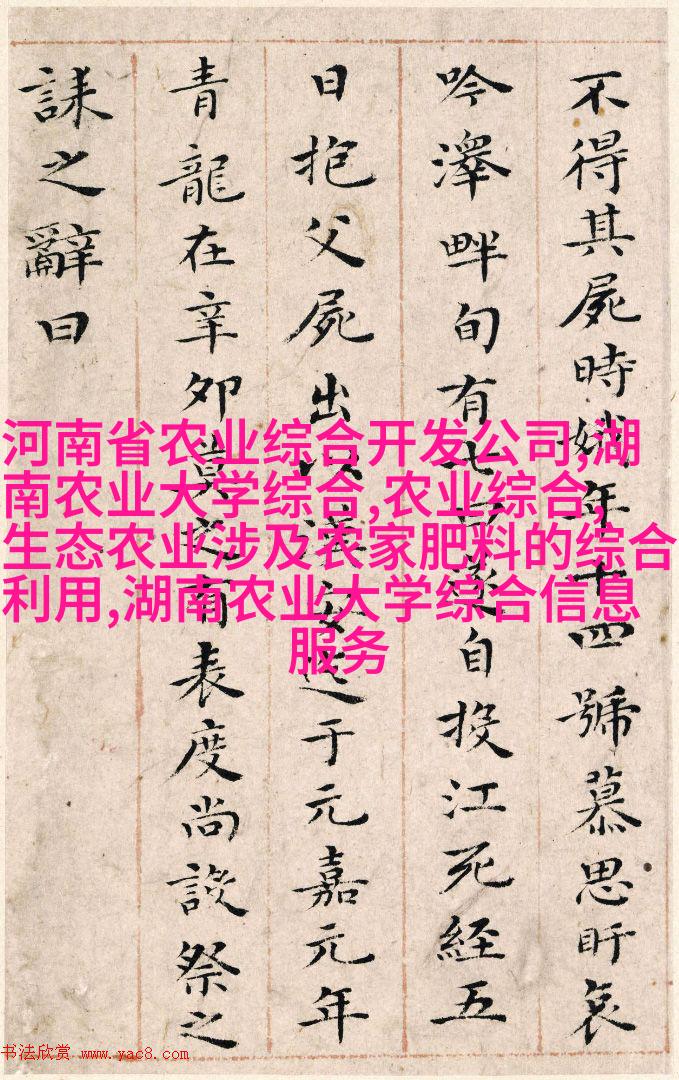 不得其屍時娥年十四號慕思盱哀
吟澤畔旬有七日遂自投江死經五
日抱父屍出以漢安迄于元嘉元年
青龍在辛卯莫之有表度尚設祭之
誄之辭曰
河南省农业综合开发公司,湖
南农业大学综合,农业综合,
生态农业涉及农家肥料的综合
利用,湖南农业大学综合信息
服务
书法欣赏 www.yac8.com